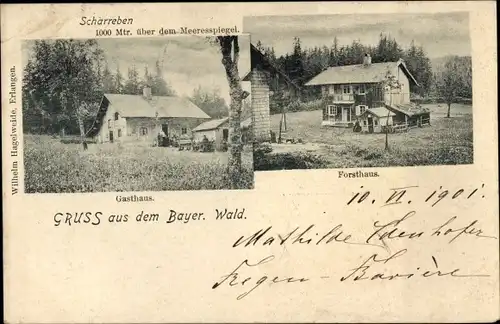 Scharreben
1000 Mtr. über dem Meeresspiegel.
Wilhelm Hagelweide, Erlangen.
Gasthaus.
Forsthaus.
GRUSS aus dem Bayer. Wald.
10. VI. 1901.
Mathilde Edenhofer
Regen - Bavière